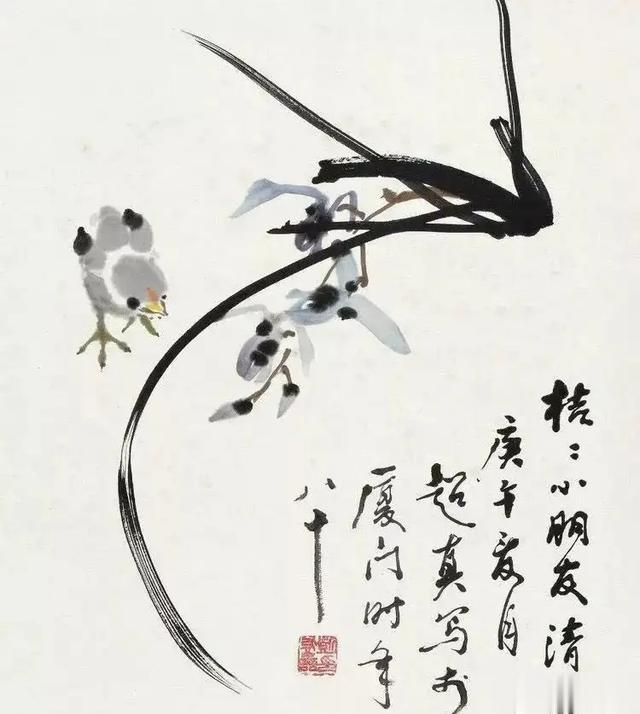 桔〻小朋友清
庚午夏月
超真写於
厦门时年
八十